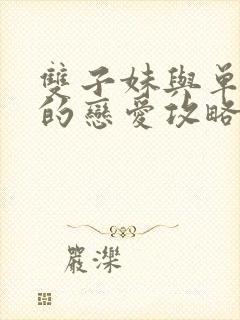 雙子妹與單
的戀愛攻略
嚴濼